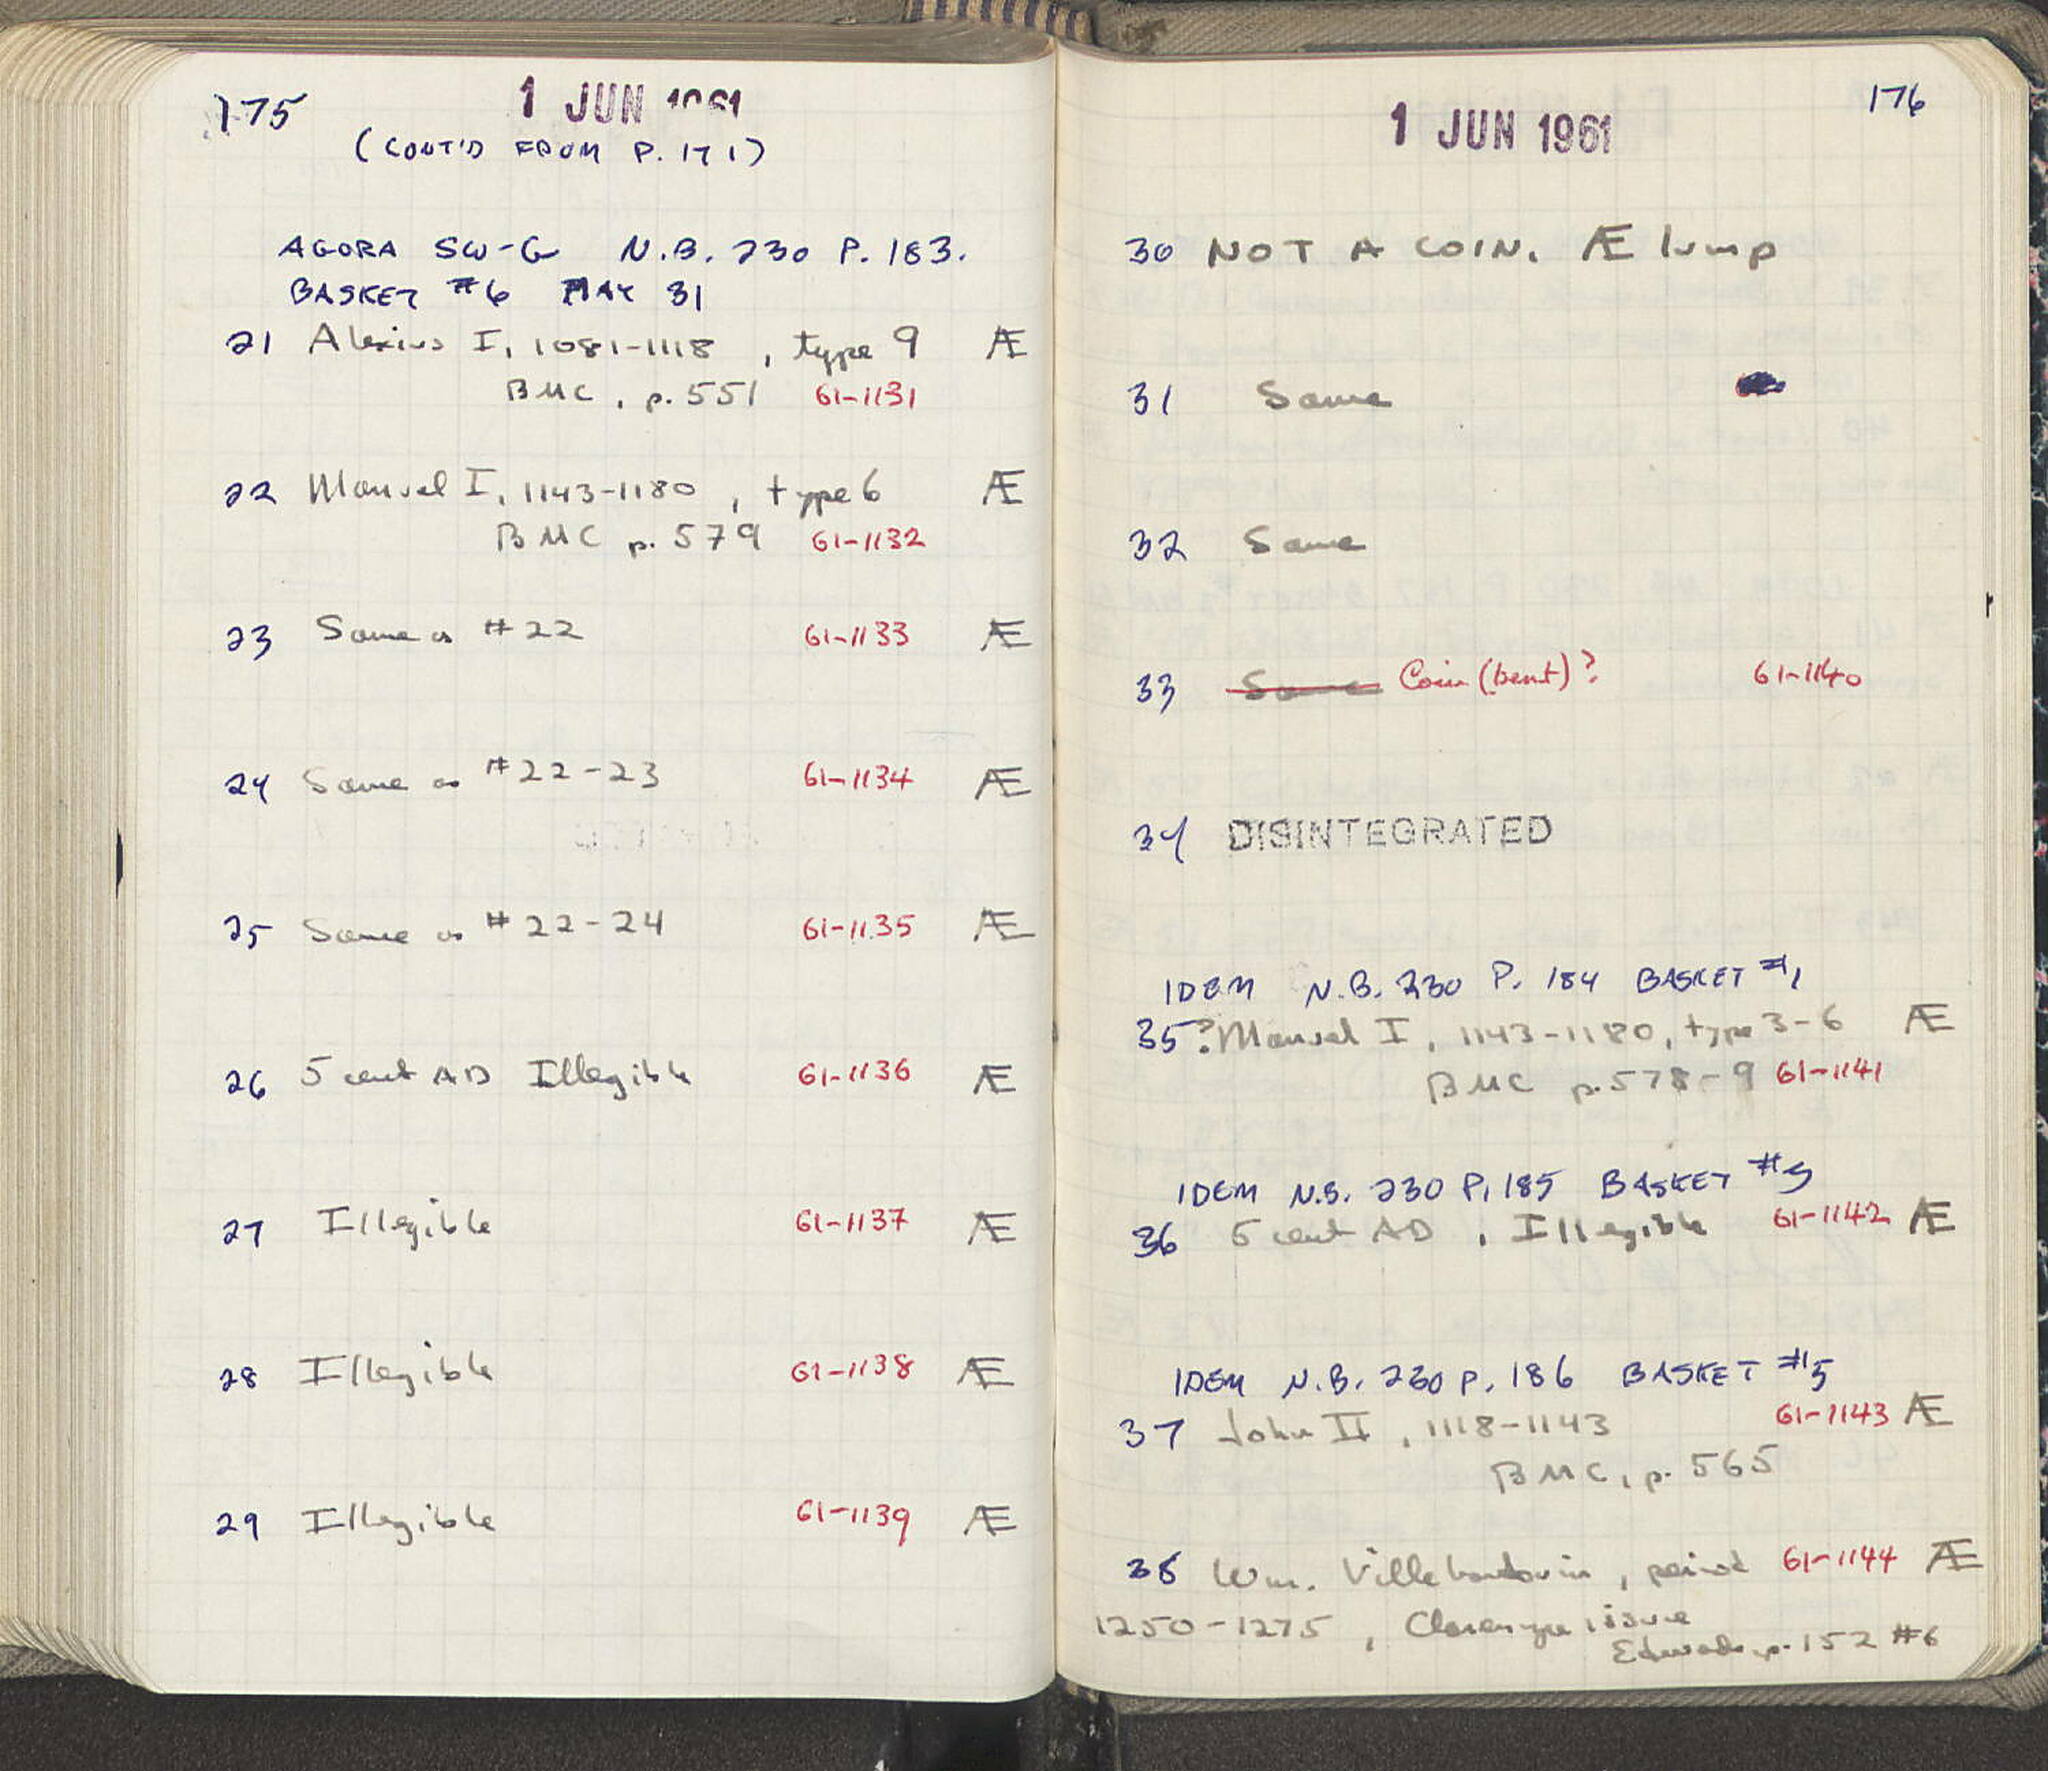 175
1 JUN 1961
(CONT'D FROM P. 171)
AGORA SW-G N.B. 230 P. 183.
BASKET #6 MAY 31
21 Alexius I, 1081-1118, type 9 Æ
BMC, p. 551 61-1131
22 Manuel I, 1143-1180, type 6 Æ
BMC p. 579 61-1132
23 Same as #22 61-1133 Æ
24 Same as #22-23 61-1134 Æ
25 Same as #22-24 61-1135 Æ
26 5 cent AD Illegible 61-1136 Æ
27 Illegible 61-1137 Æ
28 Illegible 61-1138 Æ
29 Illegible 61-1139 Æ
176
1 JUN 1961
30 NOT A COIN. Æ lump
31 Same
32 Same
33 Same Coin (bent)? 61-1140
34 DISINTEGRATED
IDEM N.B. 230 P. 184 BASKET #1
35 ? Manuel I, 1143-1180, type 3-6 Æ
BMC p. 578-9 61-1141
IDEM N.B. 230 P. 185 BASKET #3
36 5 cent AD, Illegible 61-1142 Æ
IDEM N.B. 230 P. 186 BASKET #5
37 John II, 1118-1143 61-1143 Æ
BMC, p. 565
38 Wm. Villehardouin, period 61-1144 Æ
1250-1275, Clarenza issue
Edwards p. 152 #6